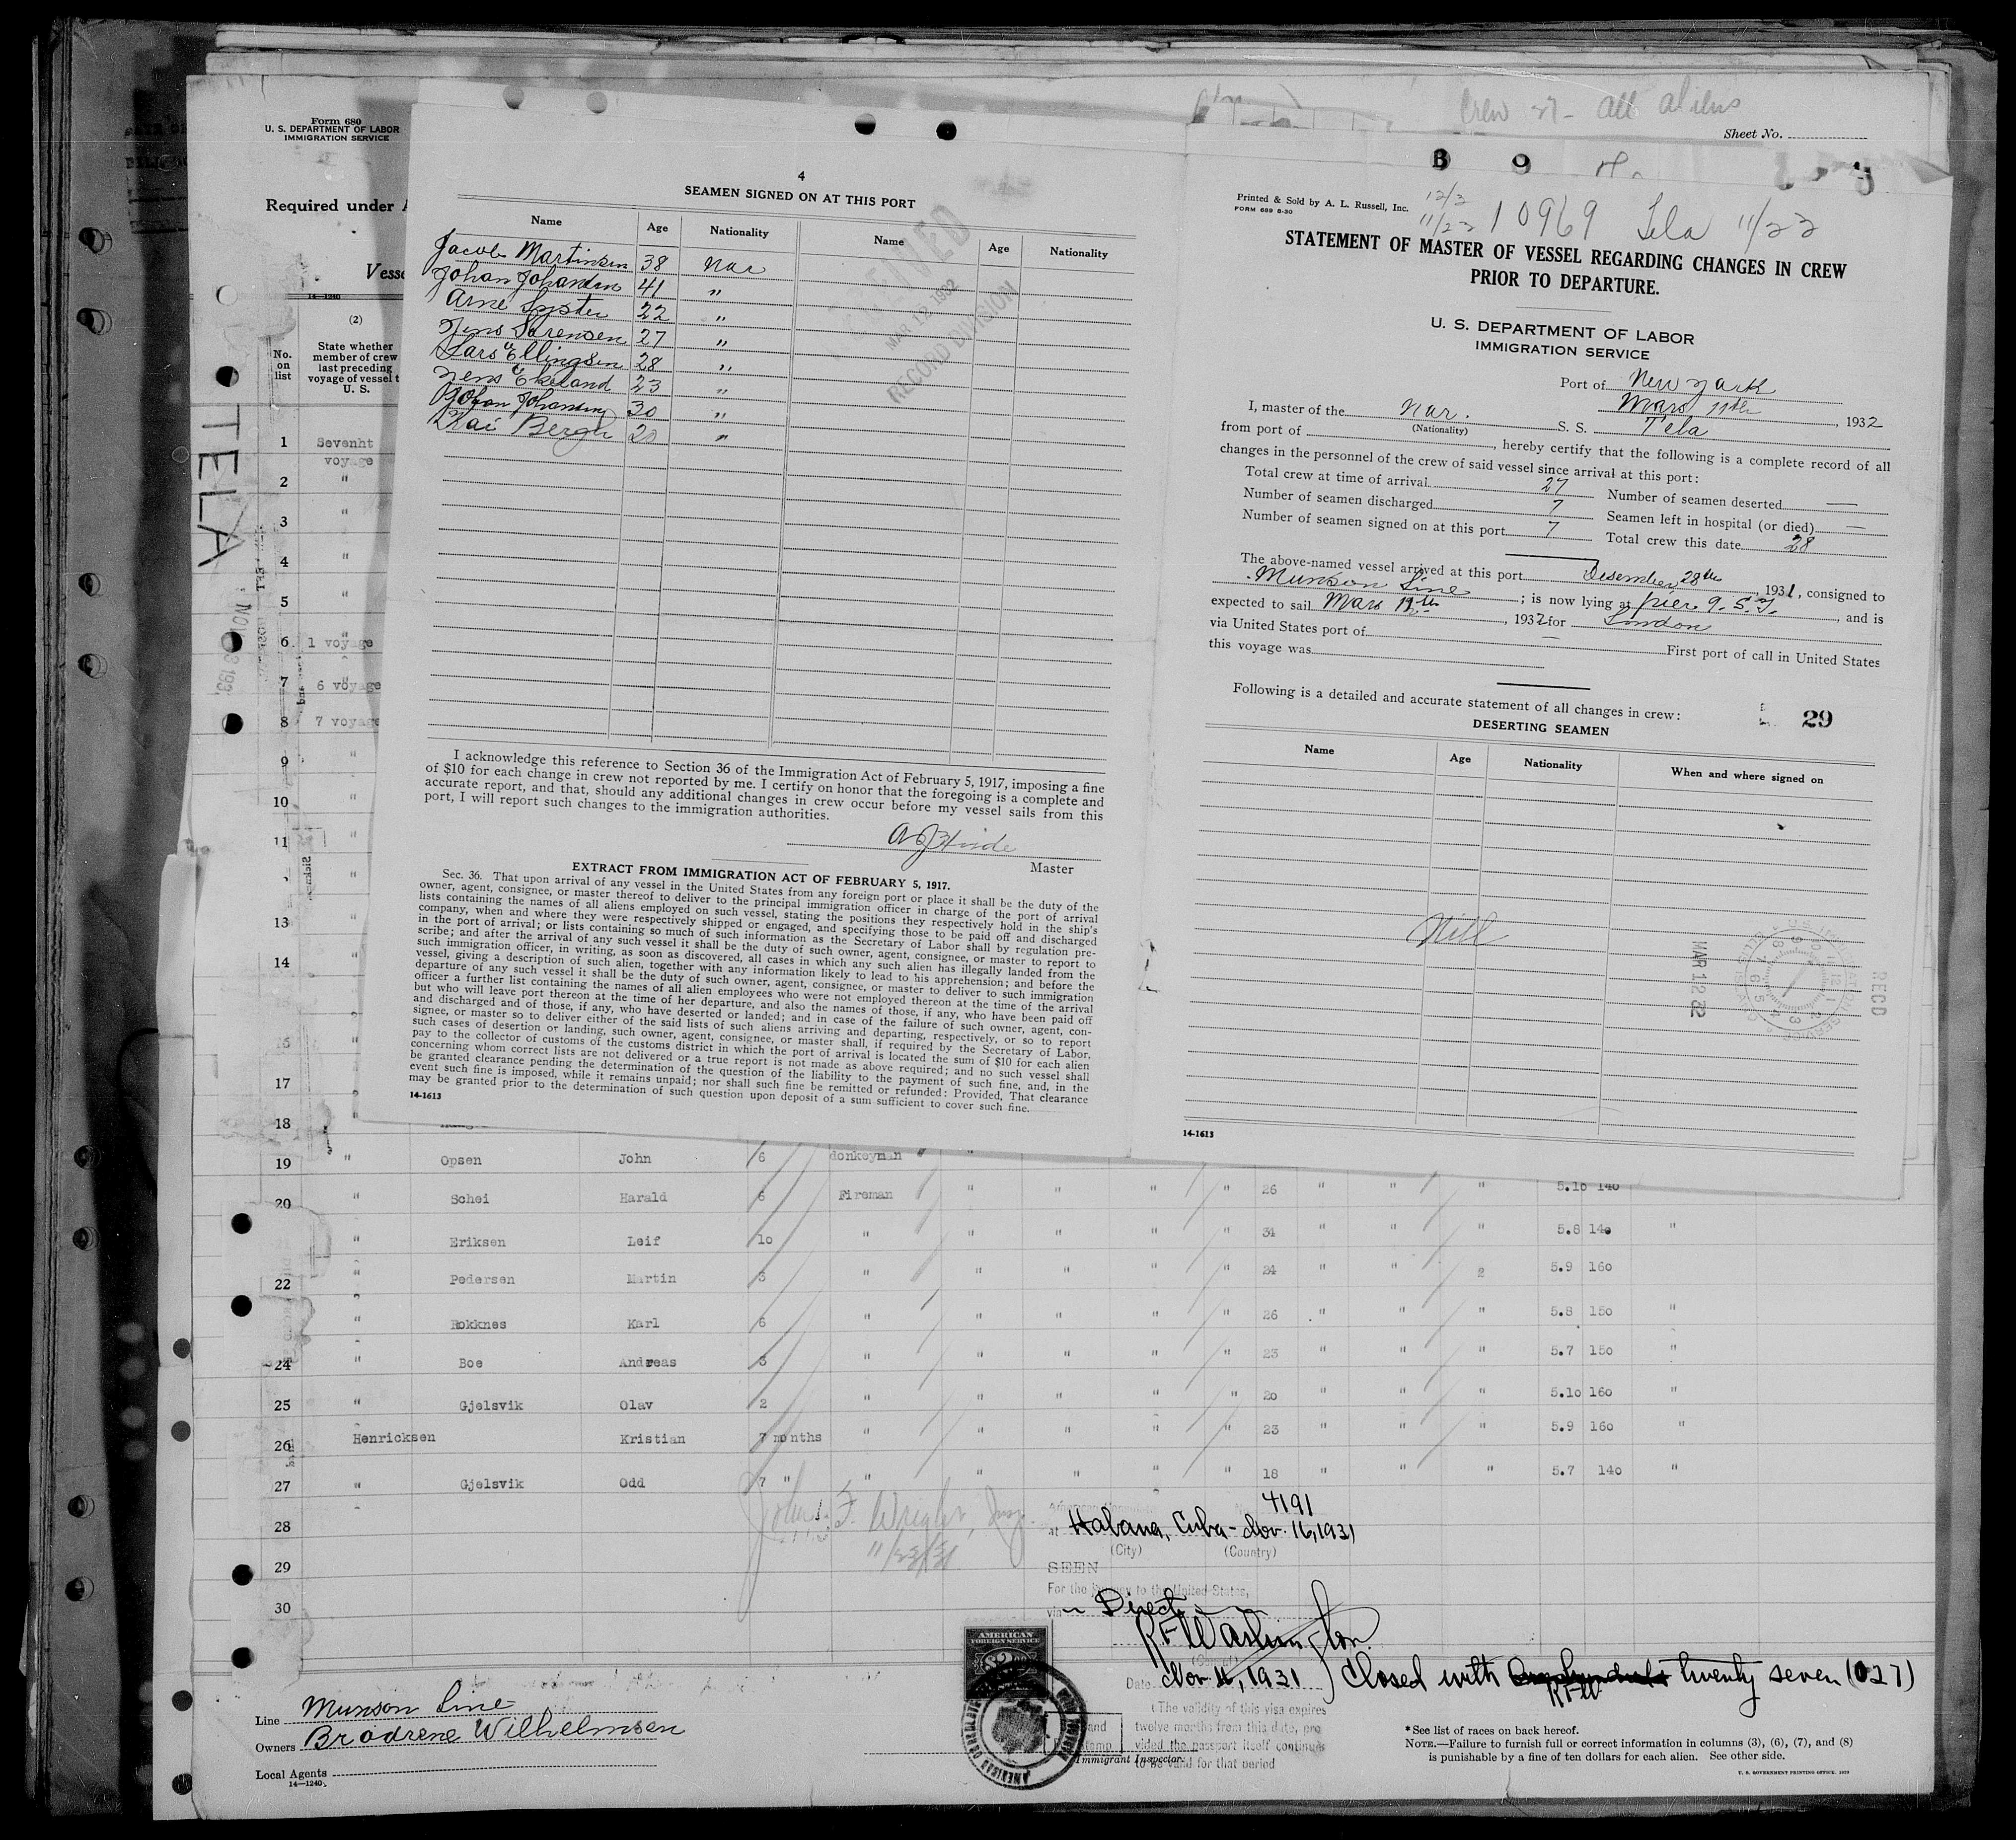 Crew 27 - all aliens
Sheet No.
Form 680
U. S. DEPARTMENT OF LABOR
IMMIGRATION SERVICE
Required under A
Vesse
14—1240
(2)
No. on list
State whether
member of crew
last preceding
voyage of vessel t
U. S.
TELA
1 Sevenht
voyage
2 "
3 "
4 "
5 "
6 1 voyage
7 6 voyage
8 7 voyage
9 "
10 "
11 "
"
13 "
14 "
17 "
18
4
SEAMEN SIGNED ON AT THIS PORT
Name Age Nationality Name Age Nationality
Jacob Martinsen 38 Nor
Johan Johansen 41 "
Arne Lyster 22 "
Jens Sørensen 27 "
Lars Ellingsen 28 "
Jens Ekeland 23 "
Johan Johansen 30 "
Kai Bergh 20 "
MAR 12 1932
RECORD DIVISION
I acknowledge this reference to Section 36 of the Immigration Act of February 5, 1917, imposing a fine
of $10 for each change in crew not reported by me. I certify on honor that the foregoing is a complete and
accurate report, and that, should any additional changes in crew occur before my vessel sails from this
port, I will report such changes to the immigration authorities.
Master
EXTRACT FROM IMMIGRATION ACT OF FEBRUARY 5, 1917.
Sec. 36. That upon arrival of any vessel in the United States from any foreign port or place it shall be the duty of the
owner, agent, consignee, or master thereof to deliver to the principal immigration officer in charge of the port of arrival
lists containing the names of all aliens employed on such vessel, stating the positions they respectively hold in the ship's
company, when and where they were respectively shipped or engaged, and specifying those to be paid off and discharged
in the port of arrival; or lists containing so much of such information as the Secretary of Labor shall by regulation pre-
scribe; and after the arrival of any such vessel it shall be the duty of such owner, agent, consignee, or master to report to
such immigration officer, in writing, as soon as discovered, all cases in which any such alien has illegally landed from the
vessel, giving a description of such alien, together with any information likely to lead to his apprehension; and before the
departure of any such vessel it shall be the duty of such owner, agent, consignee, or master to deliver to such immigration
officer a further list containing the names of all alien employees who were not employed thereon at the time of the arrival
but who will leave port thereon at the time of her departure, and also the names of those, if any, who have been paid off
and discharged and of those, if any, who have deserted or landed; and in case of the failure of such owner, agent, con-
signee, or master so to deliver either of the said lists of such aliens arriving and departing, respectively, or so to report
such cases of desertion or landing, such owner, agent, consignee, or master shall, if required by the Secretary of Labor,
pay to the collector of customs of the customs district in which the port of arrival is located the sum of $10 for each alien
concerning whom correct lists are not delivered or a true report is not made as above required; and no such vessel shall
be granted clearance pending the determination of the question of the liability to the payment of such fine, and, in the
event such fine is imposed, while it remains unpaid; nor shall such fine be remitted or refunded: Provided, That clearance
may be granted prior to the determination of such question upon deposit of a sum sufficient to cover such fine.
14-1613
Printed & Sold by A. L. Russell, Inc.
FORM 689 8-30
12/3
11/23 10969 Tela 11/23
STATEMENT OF MASTER OF VESSEL REGARDING CHANGES IN CREW
PRIOR TO DEPARTURE.
U. S. DEPARTMENT OF LABOR
IMMIGRATION SERVICE
Port of New York
Mars 11th, 1932
I, master of the Nor. S. S. Tela
(Nationality)
from port of , hereby certify that the following is a complete record of all
changes in the personnel of the crew of said vessel since arrival at this port:
Total crew at time of arrival 27 Number of seamen deserted —
Number of seamen discharged 7 Seamen left in hospital (or died) —
Number of seamen signed on at this port 7 Total crew this date 28
The above-named vessel arrived at this port Desember 28th, 1931, consigned to
Munson Line; is now lying at pier 9. , and is
expected to sail Mars 12th, 1932 for London
via United States port of — First port of call in United States
this voyage was
Following is a detailed and accurate statement of all changes in crew:
29
DESERTING SEAMEN
Name Age Nationality When and where signed on
Nill
MAR 12
RECD
14-1613
19 " Opsen John 6 donkeyman " "
20 " Schei Harald 6 Fireman " " " " 26 " " " 5.10 140
" Eriksen Leif 10 " " " " " 34 " " " 5.8 140 "
22 " Pedersen Martin 3 " " " " " 24 " " 2 5.9 160
" Rokknes Karl 6 " " " " " 26 " " " 5.8 150 "
24 " Boe Andreas 3 " " " " " 23 " " " 5.7 150 "
25 " Gjelsvik Olav 2 " " " " " 20 " " " 5.10 160 "
26 Henricksen Kristian 7 months " " " " " 23 " " " 5.9 160 "
27 " Gjelsvik Odd 7 " " " " " " 18 " " " 5.7 140 "
28
29
30
John F. Wright, Insp.
11/23/31
4191
at Habana, Cuba - Nov. 16, 1931
(City) (Country)
SEEN
For the journey to the United States,
via Direct
R F Washington
AMERICAN
FOREIGN SERVICE
Date Nov 16, 1931
Closed with twenty seven (027)
RFW
(The validity of this visa expires
twelve months from this date, pro
vided the passport itself continues
to be valid for that period
Immigrant Inspector.
Line Munson Line
Owners Brødrene Wilhelmsen
Local Agents
14—1240
* See list of races on back hereof.
NOTE.—Failure to furnish full or correct information in columns (3), (6), (7), and (8)
is punishable by a fine of ten dollars for each alien. See other side.
U. S. GOVERNMENT PRINTING OFFICE. 1929